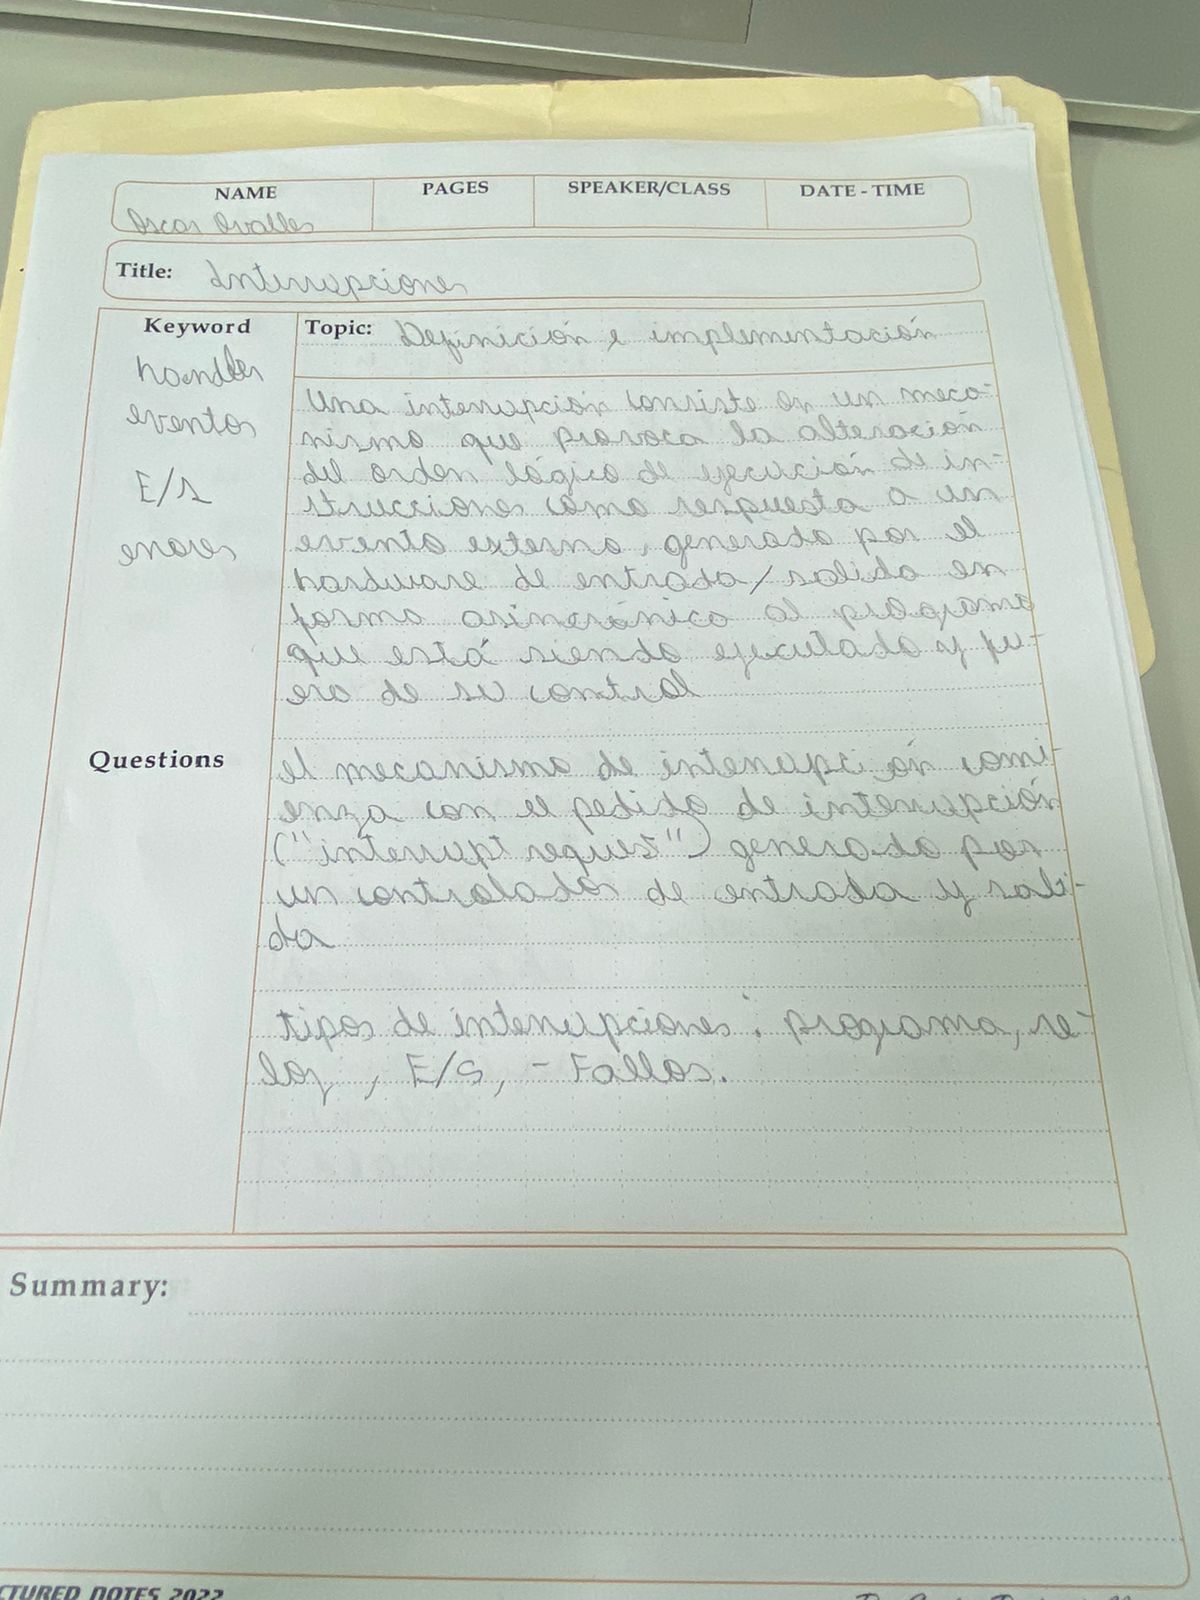 NAME PAGES SPEAKER/CLASS DATE - TIME
Oscar Ovalles
Title: Interrupciones
Keyword
handler
eventos
E/S
errores
Topic: Definición e implementación
Una interrupción consiste en un meca-
nismo que provoca la alteración
del orden lógico de ejecución de in-
strucciones como respuesta a un
evento externo, generado por el
hardware de entrada/salida en
forma asincrónica al programa
que está siendo ejecutado y fu-
era de su control
Questions
el mecanismo de interrupción comi-
enza con el pedido de interrupción
("interrupt request") generado por
un controlador de entrada y sali-
da
tipos de interrupciones: programa, re-
loj, E/S, - Fallos.
Summary:
CTURED NOTES 2022